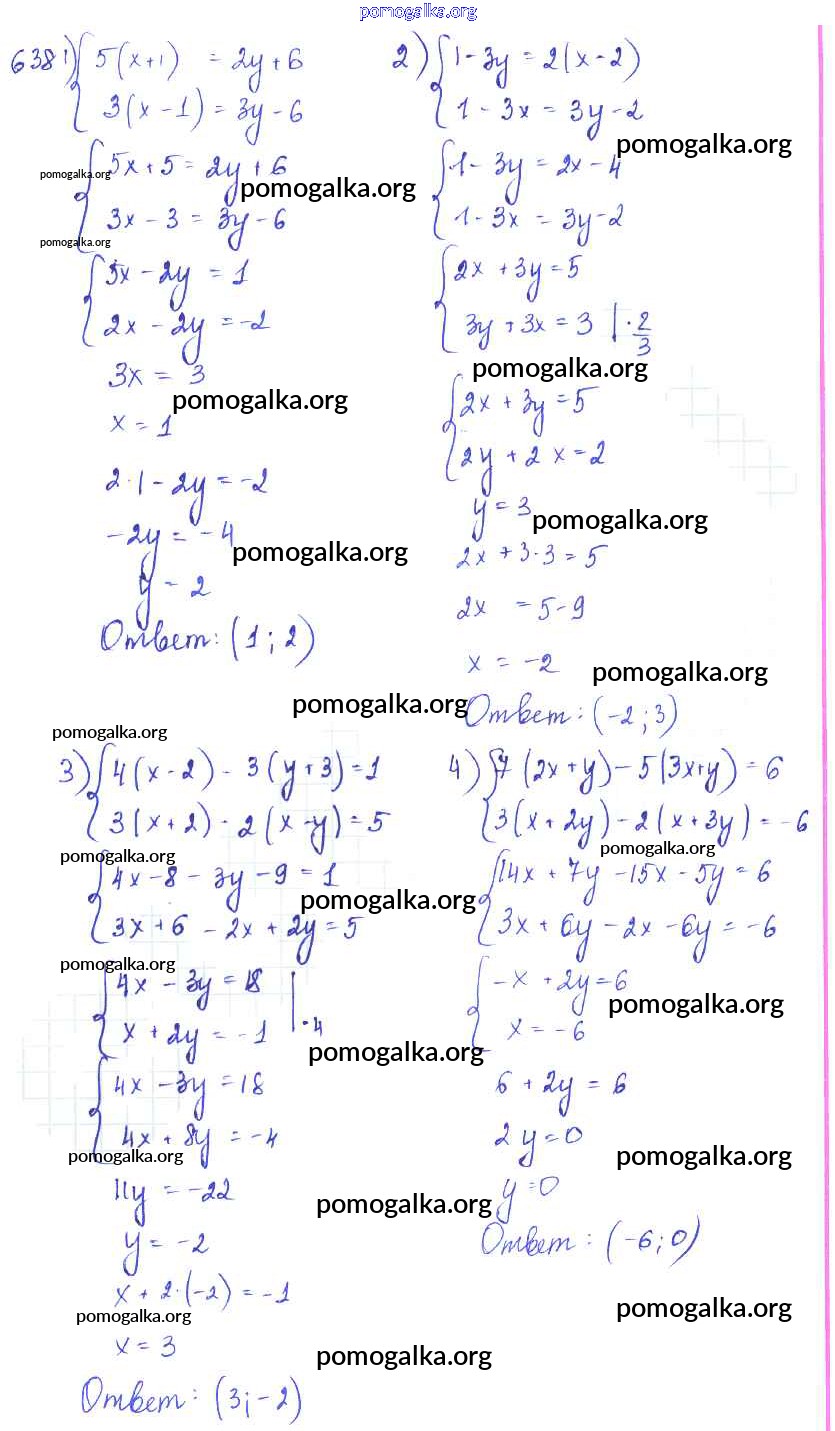 pomogalka.org
638 1) { 5(x+1) = 2y+6
3(x-1) = 3y-6
pomogalka.org
{ 5x+5 = 2y+6
pomogalka.org
3x-3 = 3y-6
pomogalka.org
{ 5x-2y = 1
2x-2y = -2
3x = 3
pomogalka.org
x = 1
2·1-2y = -2
-2y = -4
pomogalka.org
y = 2
Ответ: (1; 2)
2) { 1-3y = 2(x-2)
1-3x = 3y-2
pomogalka.org
{ 1-3y = 2x-4
1-3x = 3y-2
{ 2x+3y = 5
3y+3x = 3 | · 2/3
pomogalka.org
{ 2x+3y = 5
2y+2x = 2
y = 3
pomogalka.org
2x+3·3 = 5
2x = 5-9
x = -2
pomogalka.org
Ответ: (-2; 3)
pomogalka.org
pomogalka.org
3) { 4(x-2) - 3(y+3) = 1
3(x+2) - 2(x-y) = 5
pomogalka.org
{ 4x-8-3y-9 = 1
pomogalka.org
3x+6-2x+2y = 5
pomogalka.org
{ 4x-3y = 18
x+2y = -1 | ·4
pomogalka.org
{ 4x-3y = 18
4x+8y = -4
pomogalka.org
11y = -22
pomogalka.org
y = -2
x+2·(-2) = -1
pomogalka.org
x = 3
pomogalka.org
Ответ: (3; -2)
4) { 7(2x+y) - 5(3x+y) = 6
3(x+2y) - 2(x+3y) = -6
pomogalka.org
{ 14x+7y-15x-5y = 6
3x+6y-2x-6y = -6
{ -x+2y = 6
pomogalka.org
x = -6
6+2y = 6
2y = 0
pomogalka.org
y = 0
Ответ: (-6; 0)
pomogalka.org